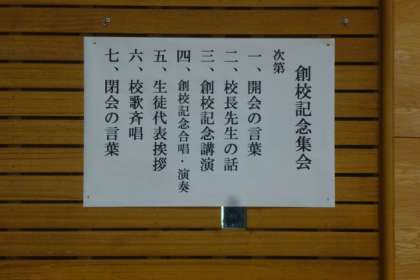 創校記念集会
次第
一、開会の言葉
二、校長先生の話
三、創校記念講演
四、創校記念合唱・演奏
五、生徒代表挨拶
六、校歌斉唱
七、閉会の言葉